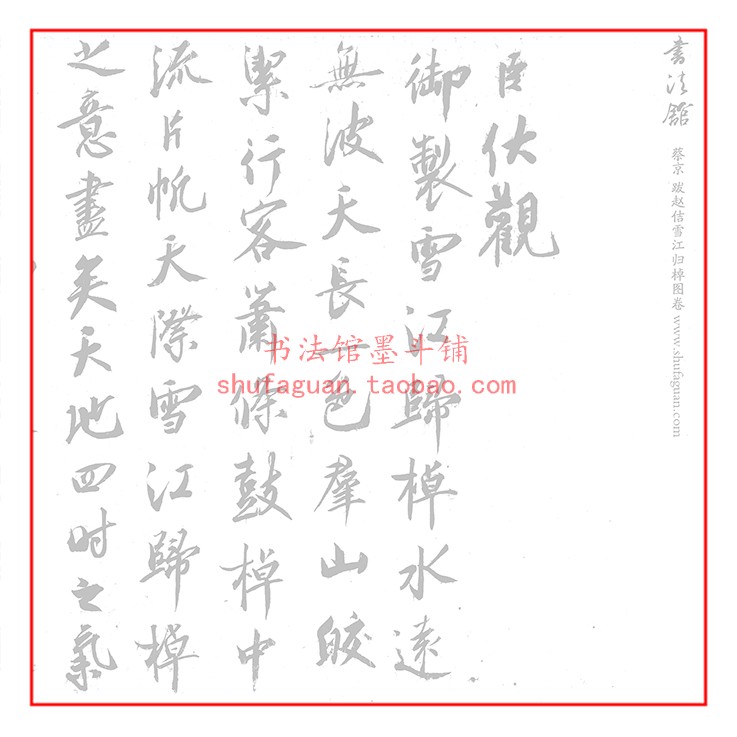 书法館
蔡京 跋赵佶雪江归棹图卷 www.shufaguan.com
臣伏觀
御製雪江歸棹水遠
無波天長一色羣山皎
潔行客蕭條鼓棹中
流片帆天際雪江歸棹
之意盡矣天地四时之氣
书法馆墨斗铺
shufaguan.taobao.com